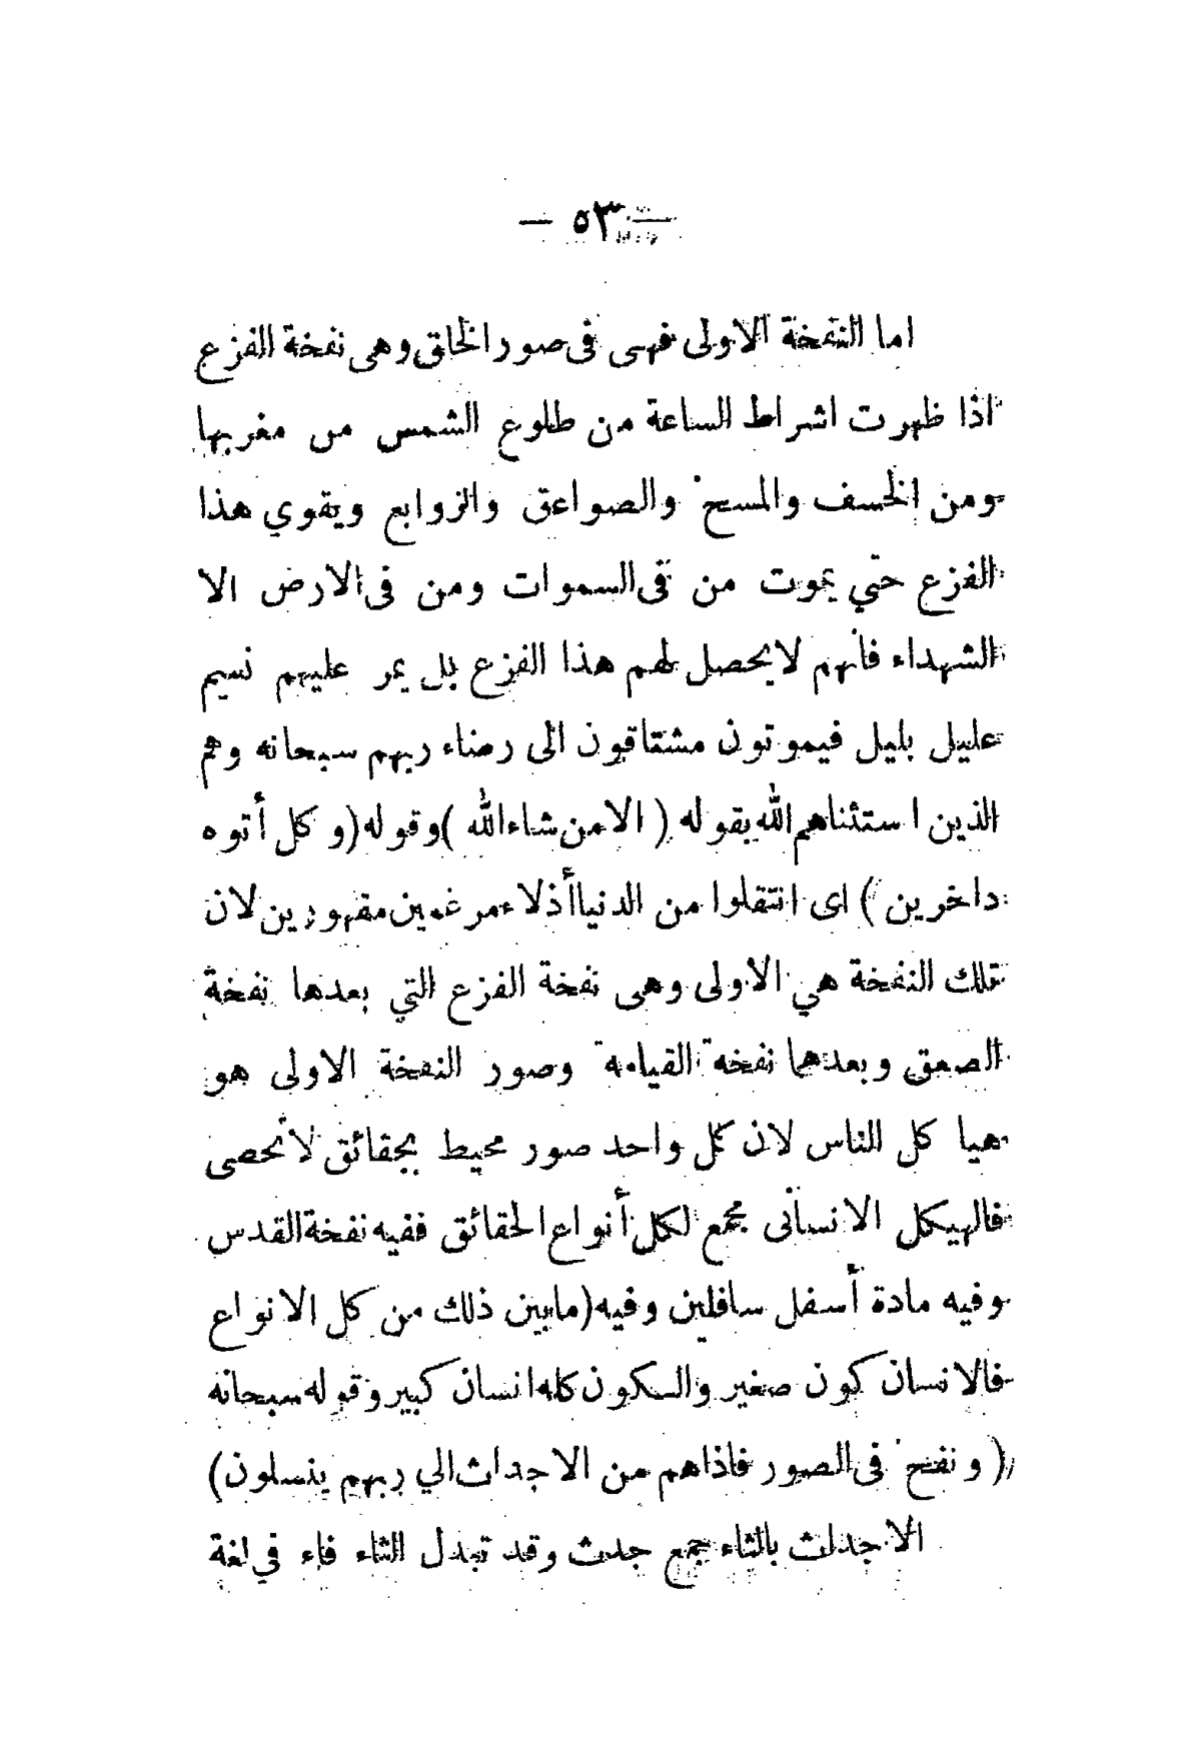 — ٥٣ —
اما النفخة الاولى فهى فى صور الخلق وهى نفخة الفزع
اذا ظهرت اشراط الساعة من طلوع الشمس من مغربها
ومن الخسف والمسخ والصواعق والزوابع ويقوي هذا
الفزع حتي يموت من فى السموات ومن فى الارض الا
الشهداء فانهم لا يحصل لهم هذا الفزع بل يمر عليهم نسيم
عليل بليل فيموتون مشتاقون الى رضاء ربهم سبحانه وهم
الذين استثناهم الله بقوله ( الا من شاء الله ) وقوله ( وكل أتوه
داخرين ) اى انتقلوا من الدنيا أذلاء مرغمين مقهورين لان
تلك النفخة هي الاولى وهى نفخة الفزع التي بعدها نفخة
الصعق وبعدهما نفخة القيامة وصور النفخة الاولى هو
هيا كل الناس لان كل واحد صور محيط بحقائق لا تحصى
فالهيكل الانسانى مجمع لكل أنواع الحقائق ففيه نفخة القدس
وفيه مادة أسفل سافلين وفيه ( ما بين ذلك من كل الانواع
فالانسان كون صغير والكون كله انسان كبير وقوله سبحانه
( ونفخ فى الصور فاذا هم من الاجداث الي ربهم ينسلون )
الاجداث بالثاء جمع جدث وقد تبدل الثاء فاء في لغة